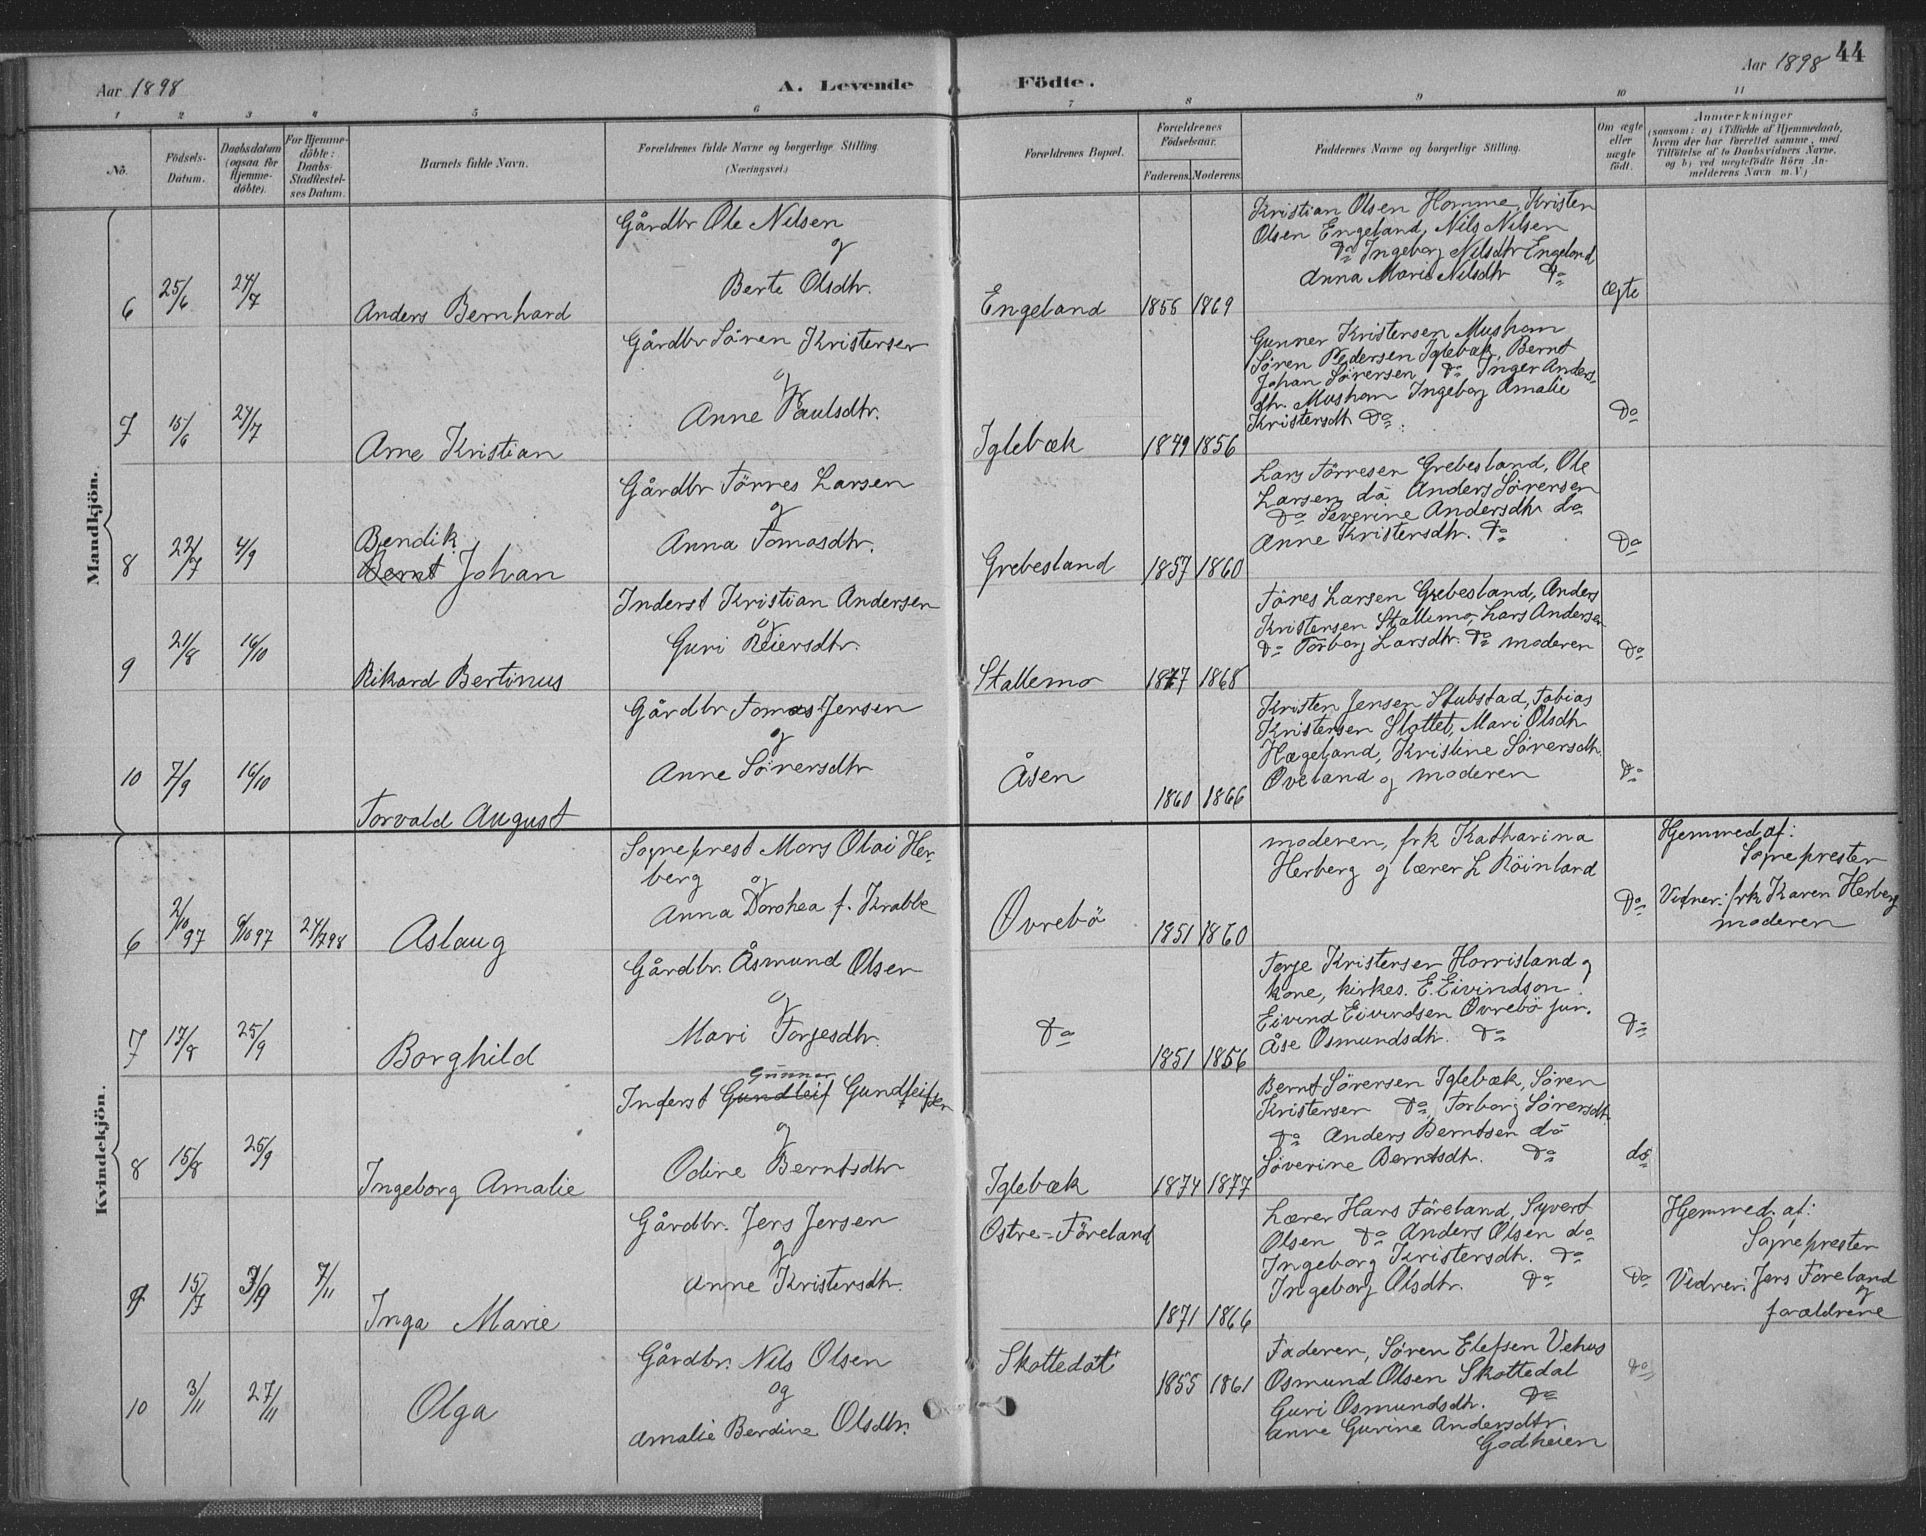 Aar 1898
A. Levende Födte.
Aar 1898
44
1 2 3 4 5 6 7 8 9 10 11
No.
Födsels-Datum.
Daabsdatum (ogsaa for Hjemme-döbte).
For Hjemme-döbte: Daabs-Stadfæstel-ses Datum.
Barnets fulde Navn.
Forældrenes fulde Navne og borgerlige Stilling. (Næringsvei.)
Forældrenes Bopæl.
Forældrenes Födselsaar.
Faderens. Moderens.
Faddernes Navne og borgerlige Stilling.
Om ægte eller uægte födt.
Anmærkninger
(saasom: a) i Tilfælde af Hjemmedaab, hvem der har forrettet samme, med Tilföielse af to Daabsvidners Navne, og b) ved uægtefödte Börn An-melderens Navn m. V.)
Mandkjön.
6 25/6 24/7 Anders Bernhard
Gårdbr Ole Nilsen
og
Berte Olsdtr.
Engeland 1855 1869
Kristian Olsen Homme, Kristen
Olsen Engeland, Nils Nilsen
Do Ingeborg Nilsdtr Engeland
Anna Marie Nilsdtr Do
Ægte
7 15/6 24/7 Arne Kristian
Gårdbr Sören Kristensen
og
Anne Paulsdtr.
Iglebæk 1849 1856
Gunner Kristensen Mushom
Sören Pedersen Iglebæk, Bernt
Johan Sörensen Do Inger Anders-
dtr. Mushom Ingeborg Amalie
Kristensdt Do
Do
8 22/7 4/9 Bendik
Bernt Johan
Gårdbr Törres Larsen
og
Anna Tomasdtr.
Grebesland 1857 1860
Lars Törresen Grebesland, Ole
Larsen do Anders Sörensen
Do Severine Andersdtr do
Anne Kristensdtr. Do
Do
9 21/8 16/10 Rikard Bertinus
Inderst Kristian Andersen
og
Guri Reiersdtr.
Stallemo 1877 1868
Töres Larsen Grebesland, Anders
Kristensen Stallemo, Lars Andersen
Do Torborg Larsdtr. Do moderen
Do
10 7/9 16/10 Torvald August
Gårdbr Tomas Jensen
og
Anne Sörensdtr
Åsen 1860 1866
Kristen Jensen Stubstad, Tobias
Kristensen Slottet, Mari Olsdtr
Hægeland, Kristine Sörensdtr.
Öveland og moderen
Do
Kvindekjön.
6 2/10 97 9/10 97 24/7 98 Aslaug
Sogneprest Mons Olai Her-
berg og
Anna Dorohea f. Krabbe
Övrebö 1851 1860
moderen, frk Katharina
Herberg og lærer L Röinland
Do
Hjemmed af:
Sognepresten
Vidner: frk Karen Herberg
moderen
7 17/8 25/9 Borghild
Gårdbr. Åsmund Olsen
og
Mari Torjesdtr.
Do 1851 1856
Terje Kristensen Horrisland og
kone, kirkes. E. Eivindson
Eivind Eivindsen Övrebö jun.
Åse Osmundsdtr. Do
Do
8 15/8 25/9 Ingeborg Amalie
Gunner
Inderst Gundleif Gundleifsen
og
Odine Berntsdtr
Iglebæk 1874 1877
Bernt Sörensen Iglebæk, Sören
Kristensen Do, Torborg Sörensdt.
Do Anders Berntsen do
Söverine Berntsdtr. Do
do
9 15/7 3/9 7/11 Inga Marie
Gårdbr. Jens Jensen
og
Anne Kristensdtr.
Östre=Föreland
1871 1866
Lærer Hans Föreland, Syvert
Olsen Do Anders Olsen do
Ingeborg Kristensdtr. Do
Ingeborg Olsdtr. Do
Do
Hjemmed. af:
Sognepresten
Vidner: Jens Föreland
og
forældrene
10 3/11 27/11 Olga
Gårdbr. Nils Olsen
og
Amalie Berdine Olsdtr.
Skottedal 1855 1861
Faderen, Sören Elefsen Vehus
Osmund Olsen Skottedal
Guri Osmundsdtr. Do
Anne Gurine Andersdtr.
Godheien
Do